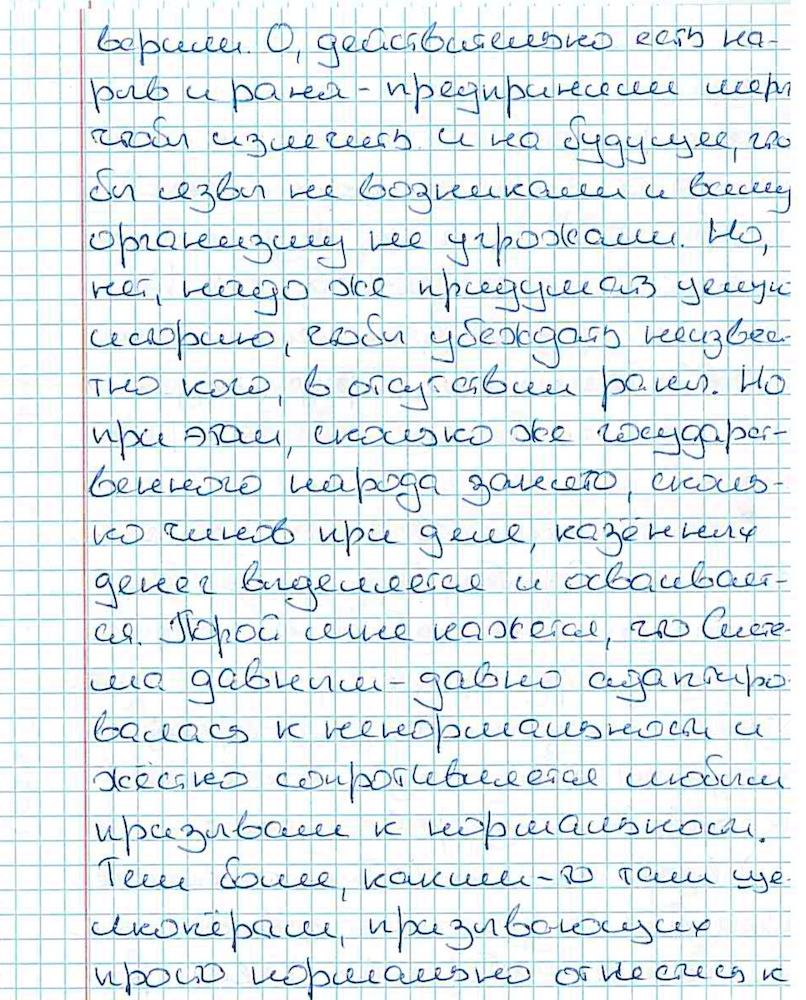 верили. О, действительно есть на-
рыв и рана - предпринели меры
чтобы излечить и на будущее, что
бы язвы не возникали и всему
организму не угрожали. Но,
нет, надо же придумать целую
историю, чтобы убеждать неизвес-
тно кого, в отсутствии раны. Но
при этом, сколько же государст-
венного народа занято, сколь-
ко чинов при деле, казённых
денег выделяется и осваивает-
ся. Порой мне кажется, что Систе-
ма давным-давно адаптиро
валась к ненормальности и
жёстко сопротивляется любым
призывам к нормальности.
Тем более, каким-то там ще
лкопёрам, призывающих
просто нормально отнестись к